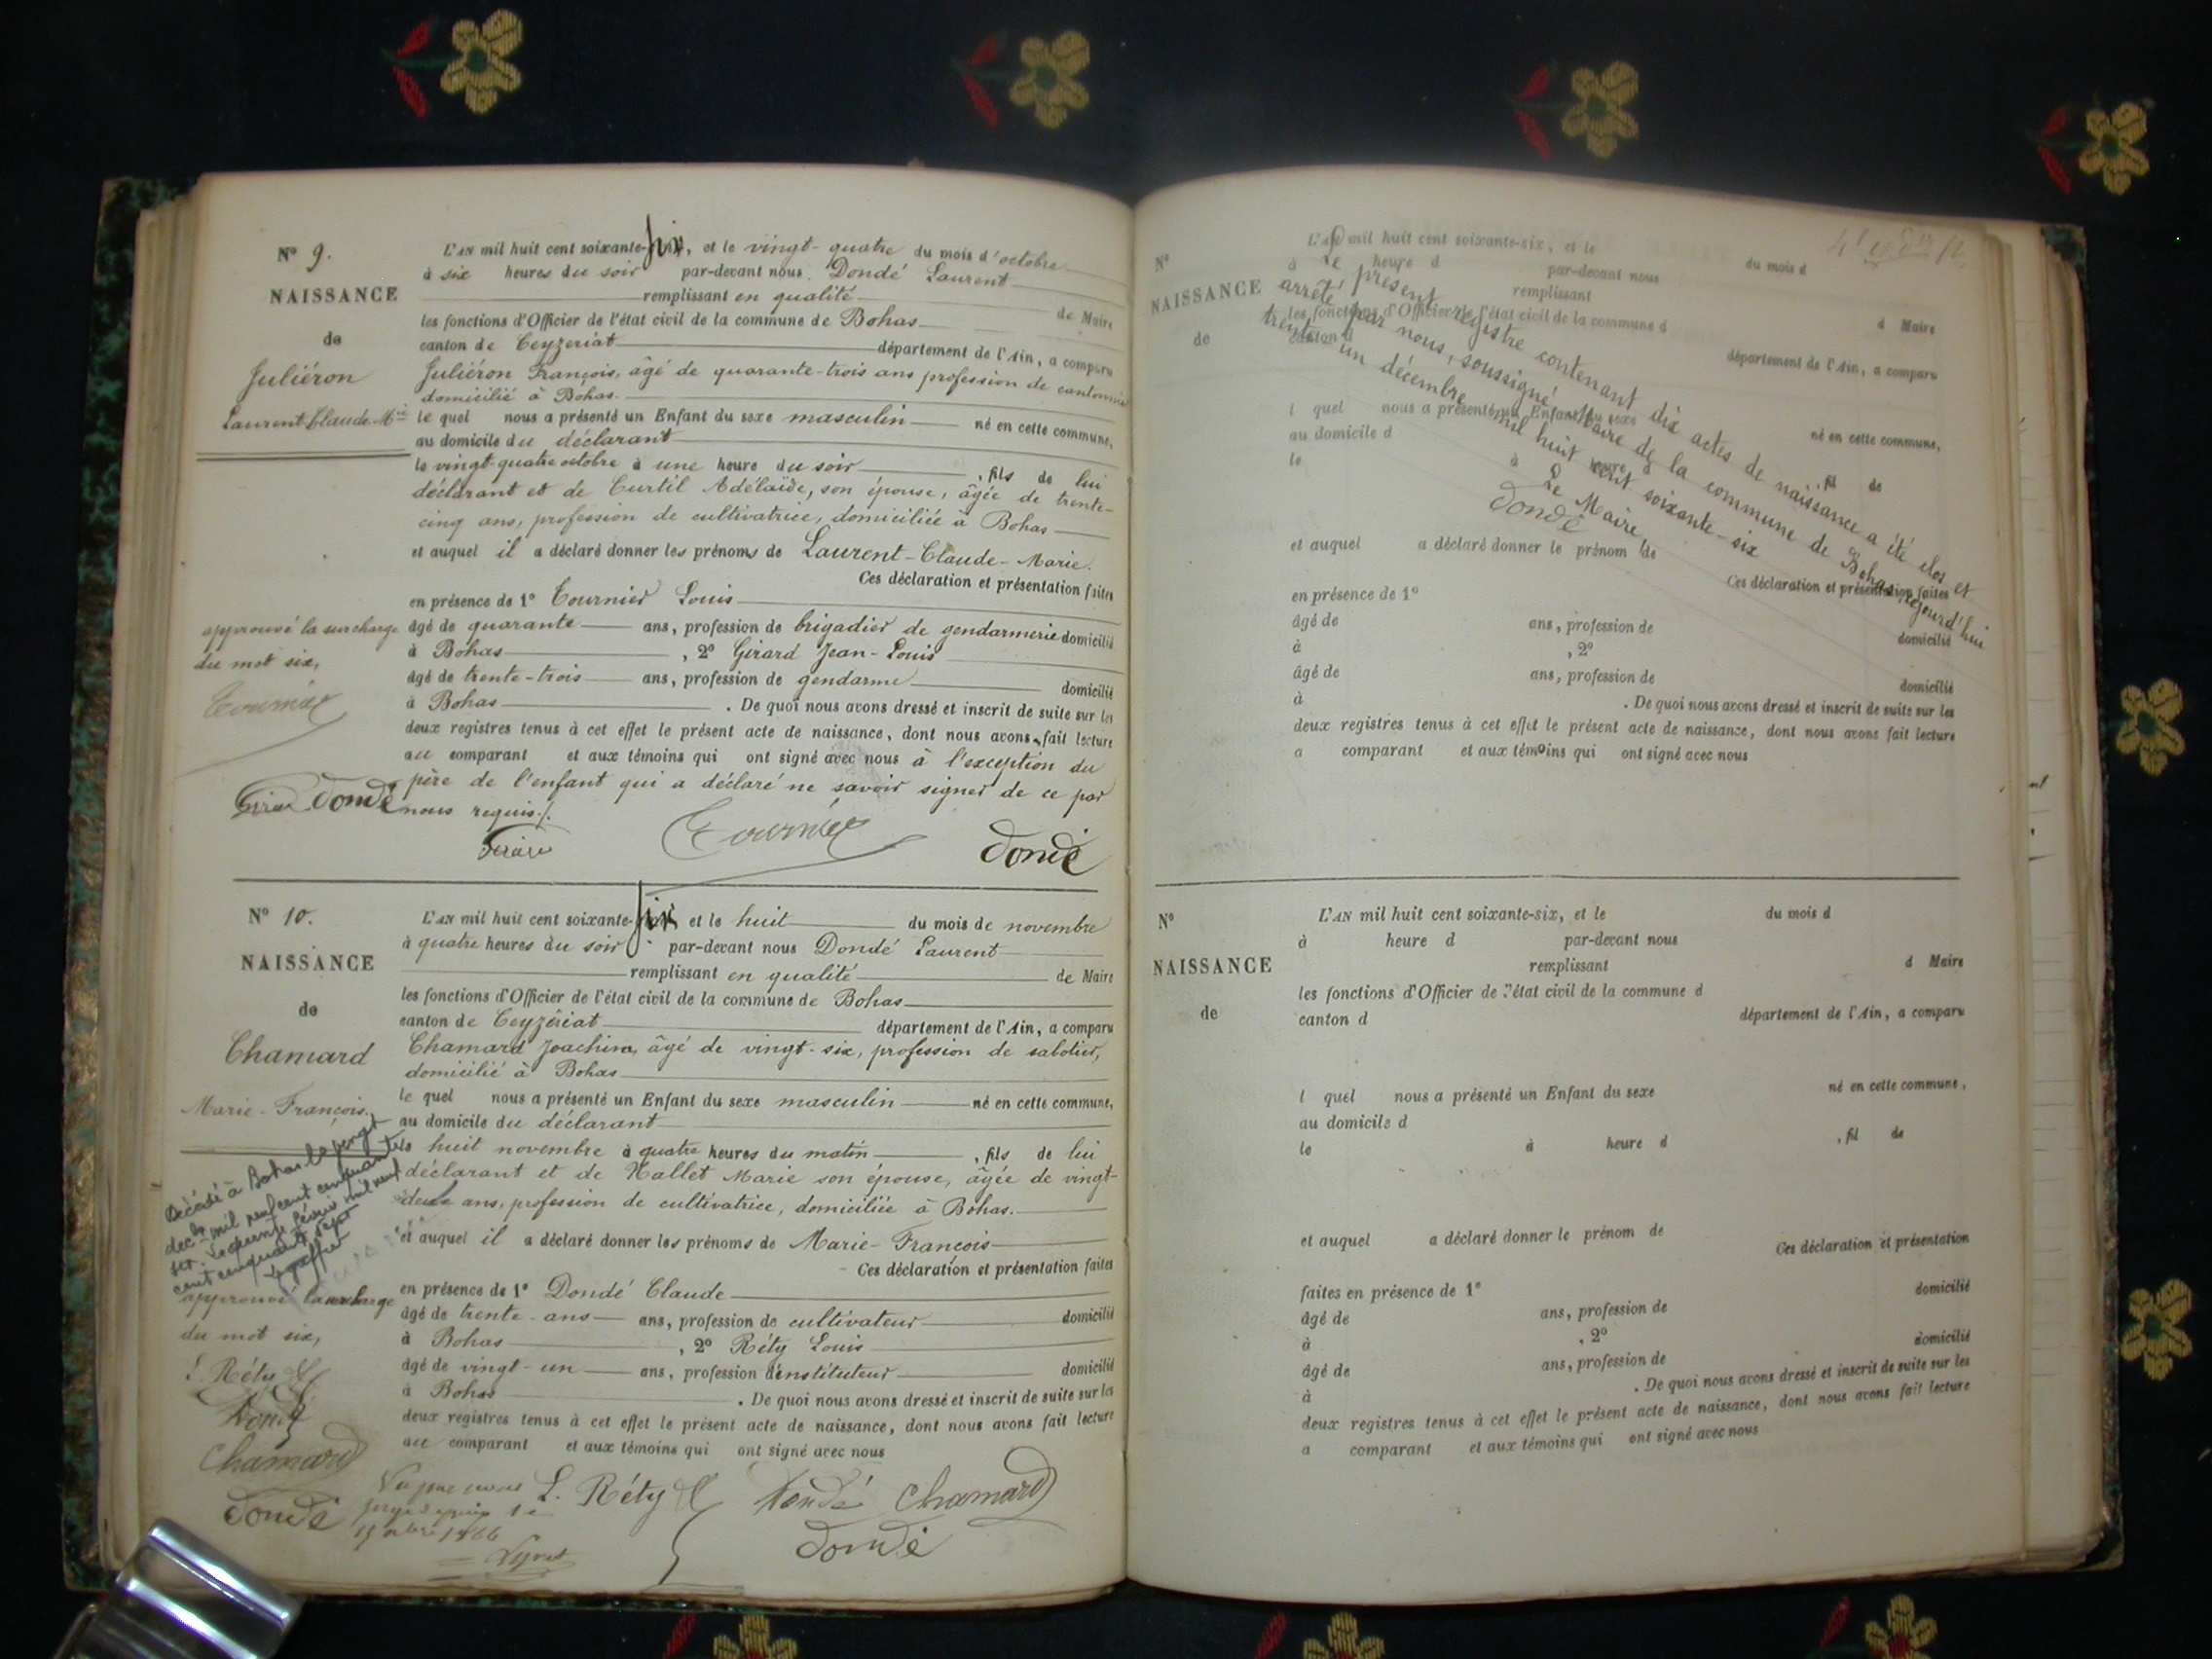 N° 9.
NAISSANCE
de
Juliéron
Laurent Claude M^ie
L'AN mil huit cent soixante-six, et le vingt-quatre du mois d'octobre
à six heures du soir par-devant nous Dondé Laurent
remplissant en qualité de Maire
les fonctions d'Officier de l'état civil de la commune de Bohas
canton de Ceyzeriat département de l'Ain, a comparu
Juliéron François, âgé de quarante-trois ans profession de cantonnier
domicilié à Bohas.
le quel nous a présenté un Enfant du sexe masculin né en cette commune,
au domicile du déclarant
le vingt-quatre octobre à une heure du soir, fils de lui
déclarant et de Curtil Adélaïde, son épouse, âgée de trente-
cinq ans, profession de cultivatrice, domiciliée à Bohas
et auquel il a déclaré donner les prénoms de Laurent-Claude-Marie.
Ces déclaration et présentation faites
en présence de 1° Tournier Louis
âgé de quarante ans, profession de brigadier de gendarmerie domicilié
à Bohas, 2° Girard Jean-Louis
âgé de trente-trois ans, profession de gendarme domicilié
à Bohas. De quoi nous avons dressé et inscrit de suite sur les
deux registres tenus à cet effet le présent acte de naissance, dont nous avons fait lecture
au comparant et aux témoins qui ont signé avec nous à l'exception du
père de l'enfant qui a déclaré ne savoir signer de ce par
nous requis./.
approuvé la surcharge
du mot six,
Tournier
Girard Dondé
Girard Tournier Dondé
N° 10.
NAISSANCE
de
Chamard
Marie-François.
L'AN mil huit cent soixante-six et le huit du mois de novembre
à quatre heures du soir par-devant nous Dondé Laurent
remplissant en qualité de Maire
les fonctions d'Officier de l'état civil de la commune de Bohas
canton de Ceyzériat département de l'Ain, a comparu
Chamard Joachim, âgé de vingt-six, profession de sabotier,
domicilié à Bohas
le quel nous a présenté un Enfant du sexe masculin né en cette commune,
au domicile du déclarant
le huit novembre à quatre heures du matin, fils de lui
déclarant et de Nallet Marie son épouse, âgée de vingt-
deux ans, profession de cultivatrice, domiciliée à Bohas.
et auquel il a déclaré donner les prénoms de Marie-François
Ces déclaration et présentation faites
en présence de 1° Dondé Claude
âgé de trente-ans ans, profession de cultivateur domicilié
à Bohas, 2° Réty Louis
âgé de vingt-un ans, profession d'instituteur domicilié
à Bohas. De quoi nous avons dressé et inscrit de suite sur les
deux registres tenus à cet effet le présent acte de naissance, dont nous avons fait lecture
au comparant et aux témoins qui ont signé avec nous
Décédé à Bohas le vingt
dec^bre mil neuf cent cinquante
six. Le quinze février mil neuf
cent cinquante sept
Le greffier
approuvé la surcharge
du mot six,
L. Réty
Dondé
Chamard
Dondé
Vu par nous
juge
1866
L. Réty Dondé Chamard
Dondé
N°
NAISSANCE
de
L'AN mil huit cent soixante-six, et le du mois d
à heure d par-devant nous
remplissant d Maire
les fonctions d'Officier de l'état civil de la commune d
canton d département de l'Ain, a comparu
l quel nous a présenté un Enfant du sexe né en cette commune,
au domicile d
le à heure d, fil de
et auquel a déclaré donner le prénom de
Ces déclaration et présentation faites
en présence de 1°
âgé de ans, profession de domicilié
à, 2°
âgé de ans, profession de domicilié
à. De quoi nous avons dressé et inscrit de suite sur les
deux registres tenus à cet effet le présent acte de naissance, dont nous avons fait lecture
a comparant et aux témoins qui ont signé avec nous
Le présent registre contenant dix actes de naissance a été clos et
arrêté par nous, soussigné Maire de la commune de Bohas, cejourd'hui
trente un décembre mil huit cent soixante-six
Le Maire
Dondé
N°
NAISSANCE
de
L'AN mil huit cent soixante-six, et le du mois d
à heure d par-devant nous
remplissant d Maire
les fonctions d'Officier de l'état civil de la commune d
canton d département de l'Ain, a comparu
l quel nous a présenté un Enfant du sexe né en cette commune,
au domicile d
le à heure d, fil de
et auquel a déclaré donner le prénom de
Ces déclaration et présentation
faites en présence de 1° domicilié
âgé de ans, profession de
à, 2° domicilié
âgé de ans, profession de
à. De quoi nous avons dressé et inscrit de suite sur les
deux registres tenus à cet effet le présent acte de naissance, dont nous avons fait lecture
a comparant et aux témoins qui ont signé avec nous